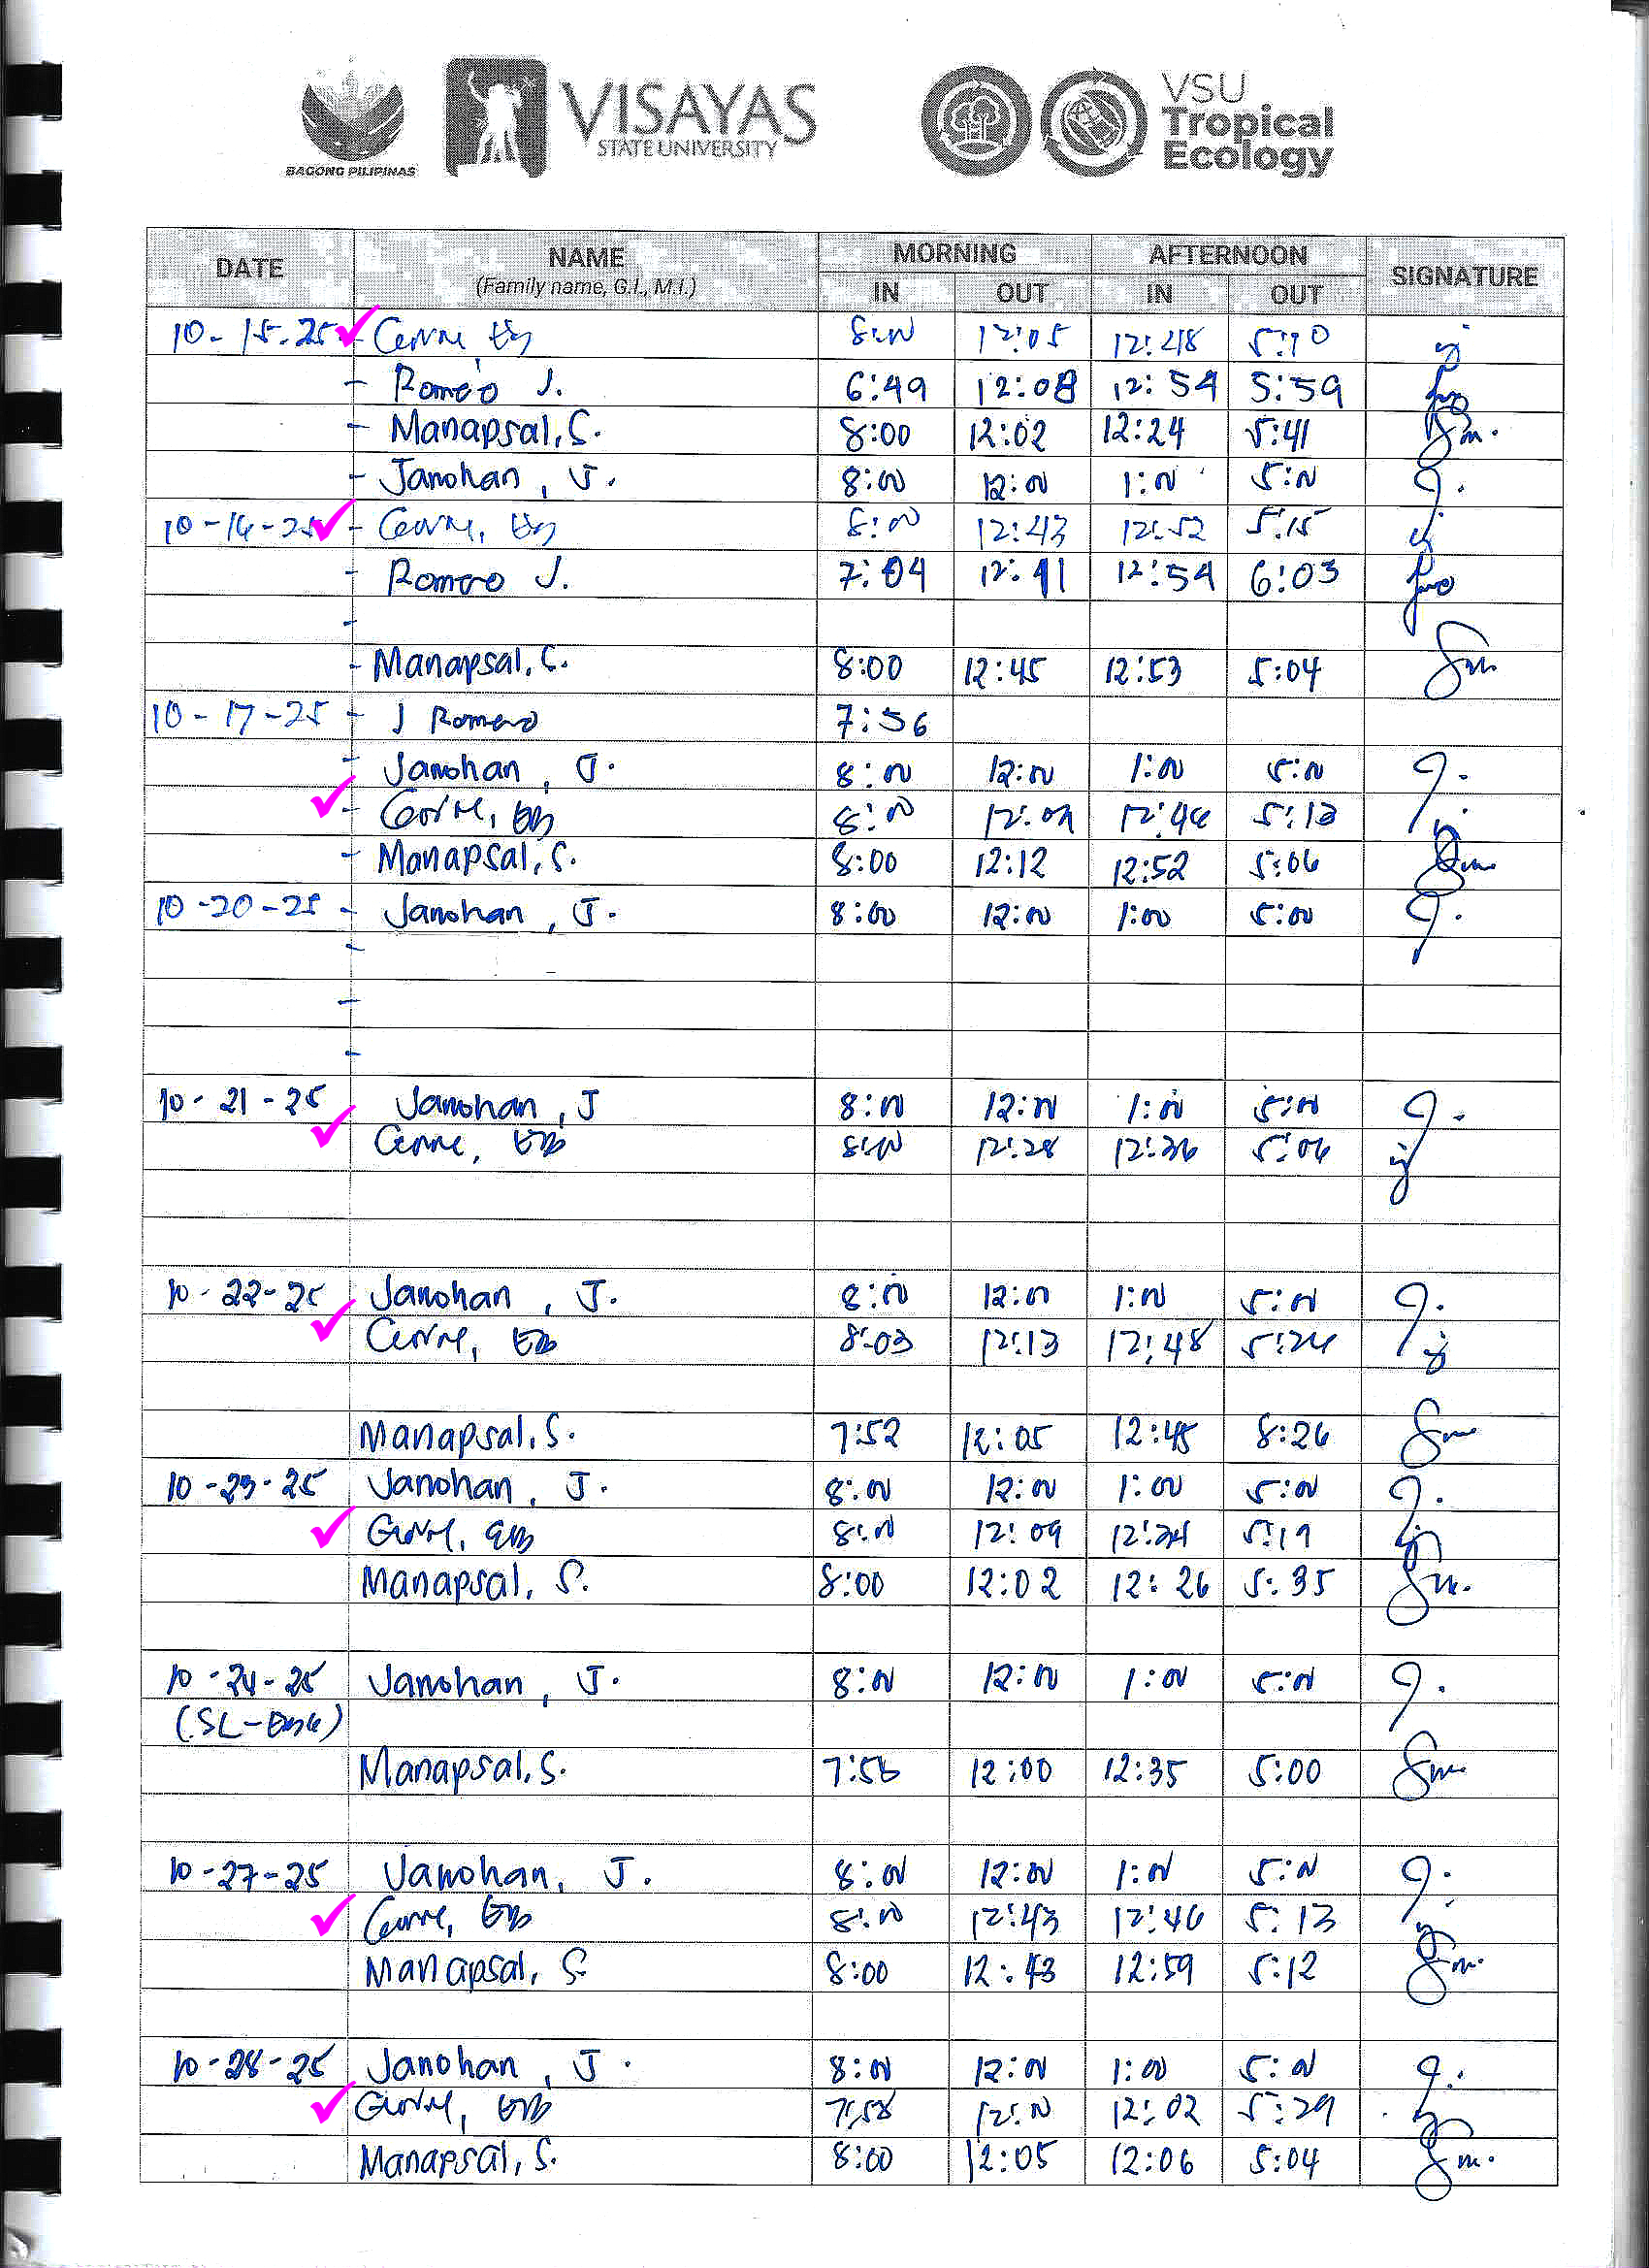 BAGONG PILIPINAS
VISAYAS
STATE UNIVERSITY
VSU
Tropical
Ecology
DATE NAME MORNING AFTERNOON SIGNATURE
(Family name, G.I., M.I.) IN OUT IN OUT
10-15-25 - 8:00 12:05 12:48 5:10
- Romeo J. 6:49 12:08 12:54 5:59
- Manapsal, S. 8:00 12:02 12:24 5:41
- Janohan, J. 8:00 12:00 1:00 5:00
10-16-25 - 8:00 12:43 12:52 5:15
- Romero J. 7:04 12:41 12:54 6:03
-
- Manapsal, S. 8:00 12:45 12:53 5:04
10-17-25 - J Romero 7:56
- Janohan, J. 8:00 12:00 1:00 5:00
- 8:00 5:13
- Manapsal, S. 8:00 12:12 12:52 5:06
10-20-25 - Janohan, J. 8:00 12:00 1:00 5:00
-
-
-
10-21-25 Janohan, J 8:00 12:00 1:00 5:00
8:00 12:28 12:36 5:06
10-22-25 Janohan, J. 8:00 12:00 1:00 5:00
8:03 12:13 12:48 5:24
Manapsal, S. 7:52 12:05 12:45 8:26
10-23-25 Janohan, J. 8:00 12:00 1:00 5:00
8:00 12:09 12:24 5:19
Manapsal, S. 8:00 12:02 12:26 5:35
10-24-25 Janohan, J. 8:00 12:00 1:00 5:00
Manapsal, S. 7:58 12:00 12:35 5:00
10-27-25 Janohan, J. 8:00 12:00 1:00 5:00
8:00 12:43 12:46 5:13
Manapsal, S 8:00 12:43 12:59 5:12
10-28-25 Janohan, J. 8:00 12:00 1:00 5:00
7:58 12:00 12:02 5:29
Manapsal, S. 8:00 12:05 12:06 5:04